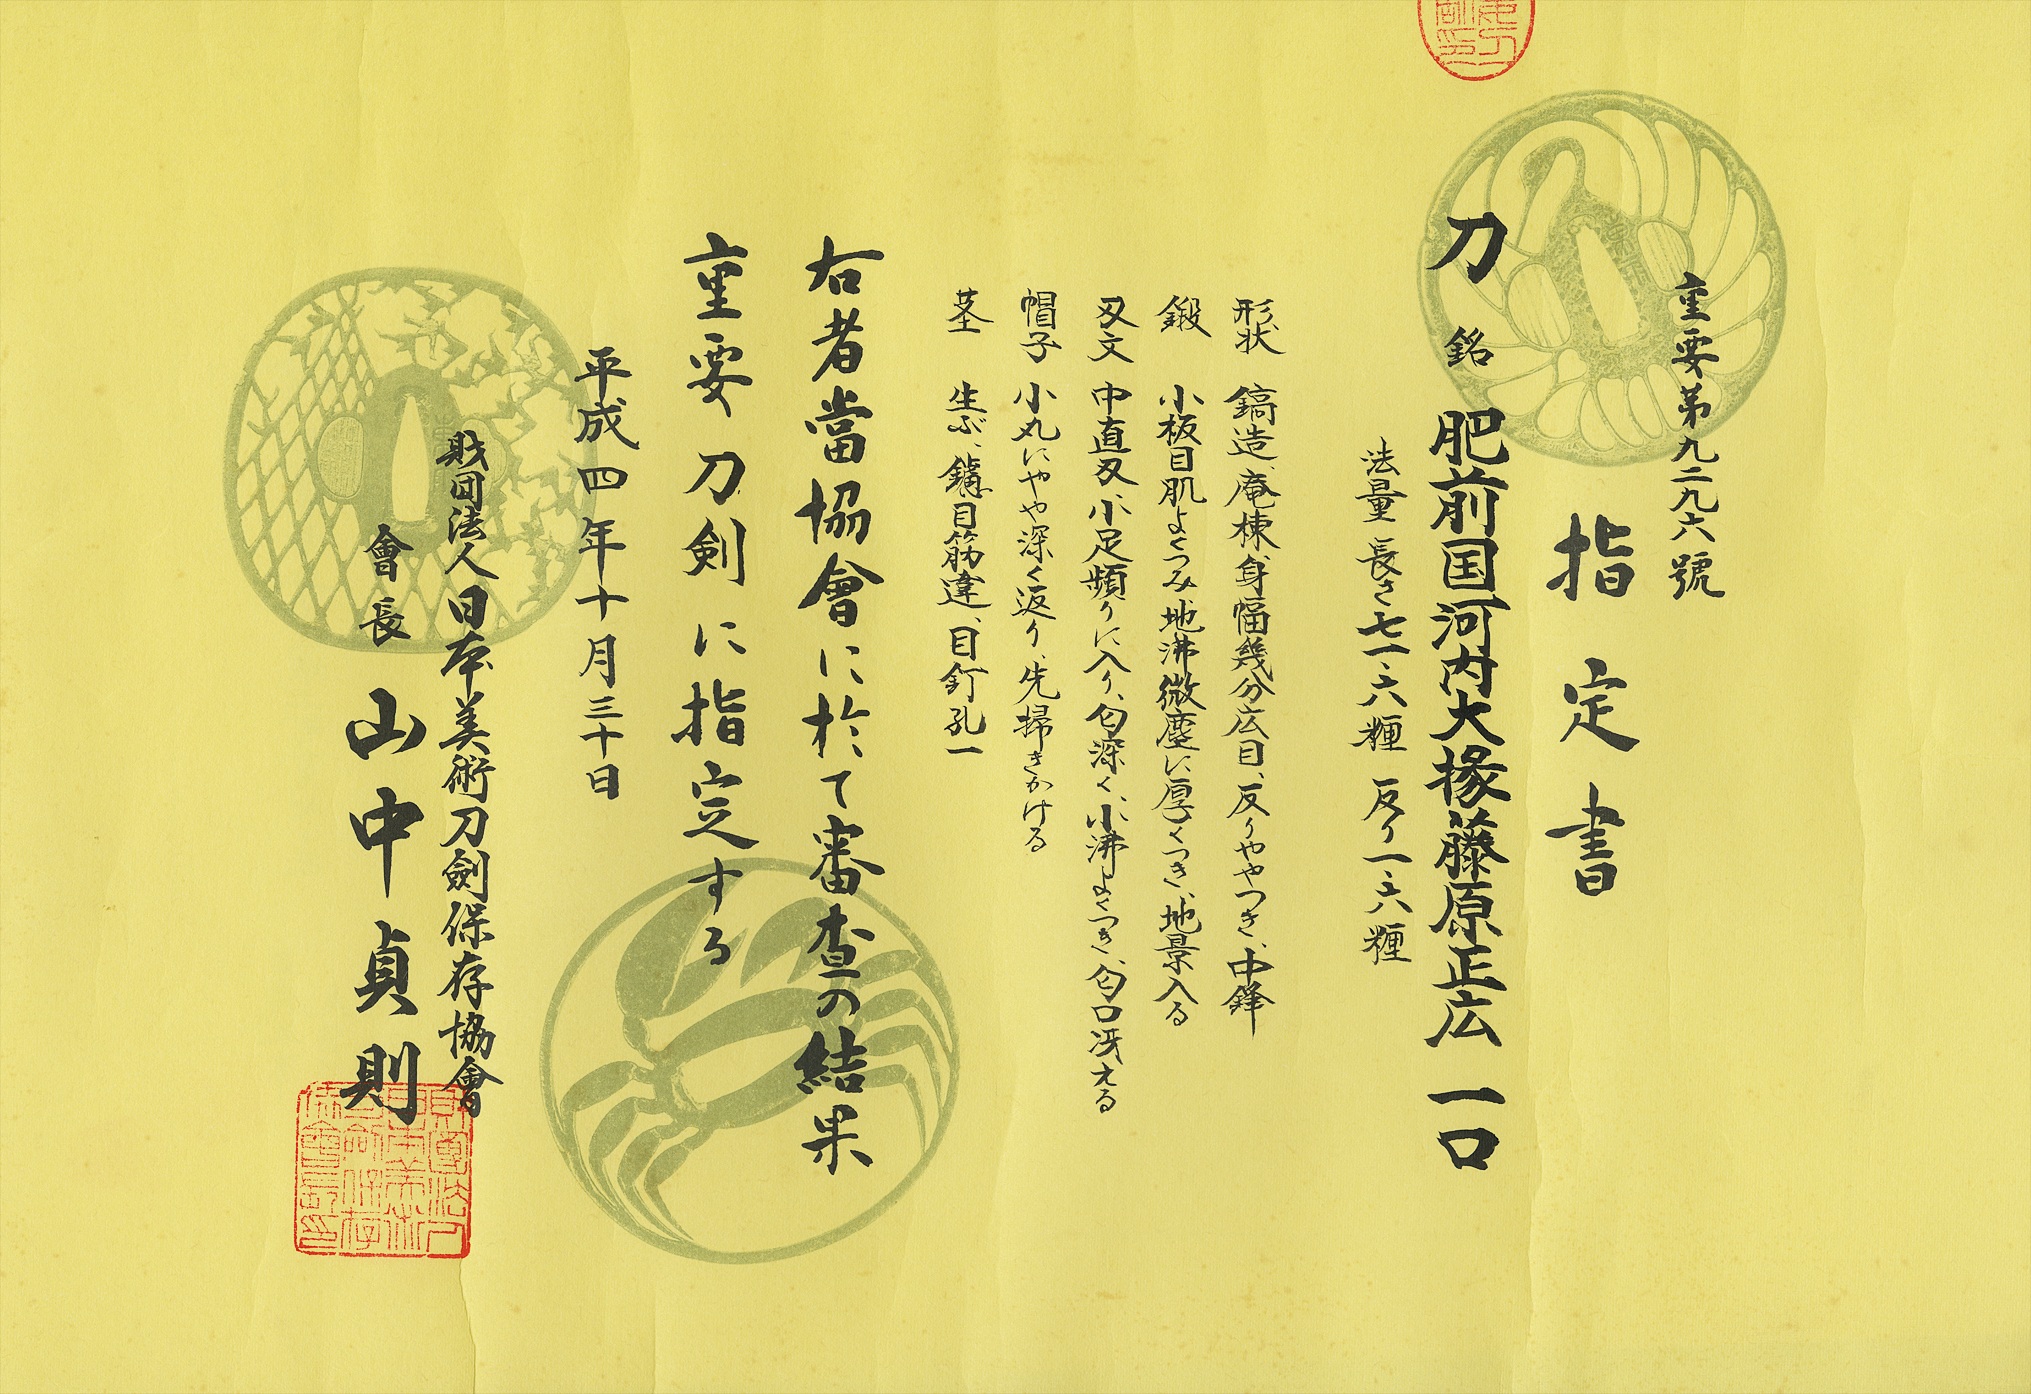 重要第九二九六號
指定書
刀 銘 肥前国河内大掾藤原正広 一口
法量 長さ七一・六糎 反り一・六糎
形状 鎬造、庵棟、身幅幾分広目、反りややつき、中鋒
鍛 小板目肌よくつみ、地沸微塵に厚くつき、地景入る
刃文 中直刃、小足頻りに入り、匂深く、小沸よくつき、匂口冴える
帽子 小丸にやや深く返り、先掃きかける
茎 生ぶ、鑢目筋違、目釘孔一
右者當協會に於て審査の結果
重要刀剣に指定する
平成四年十月三十日
財団法人日本美術刀劍保存協會
會長 山中貞則